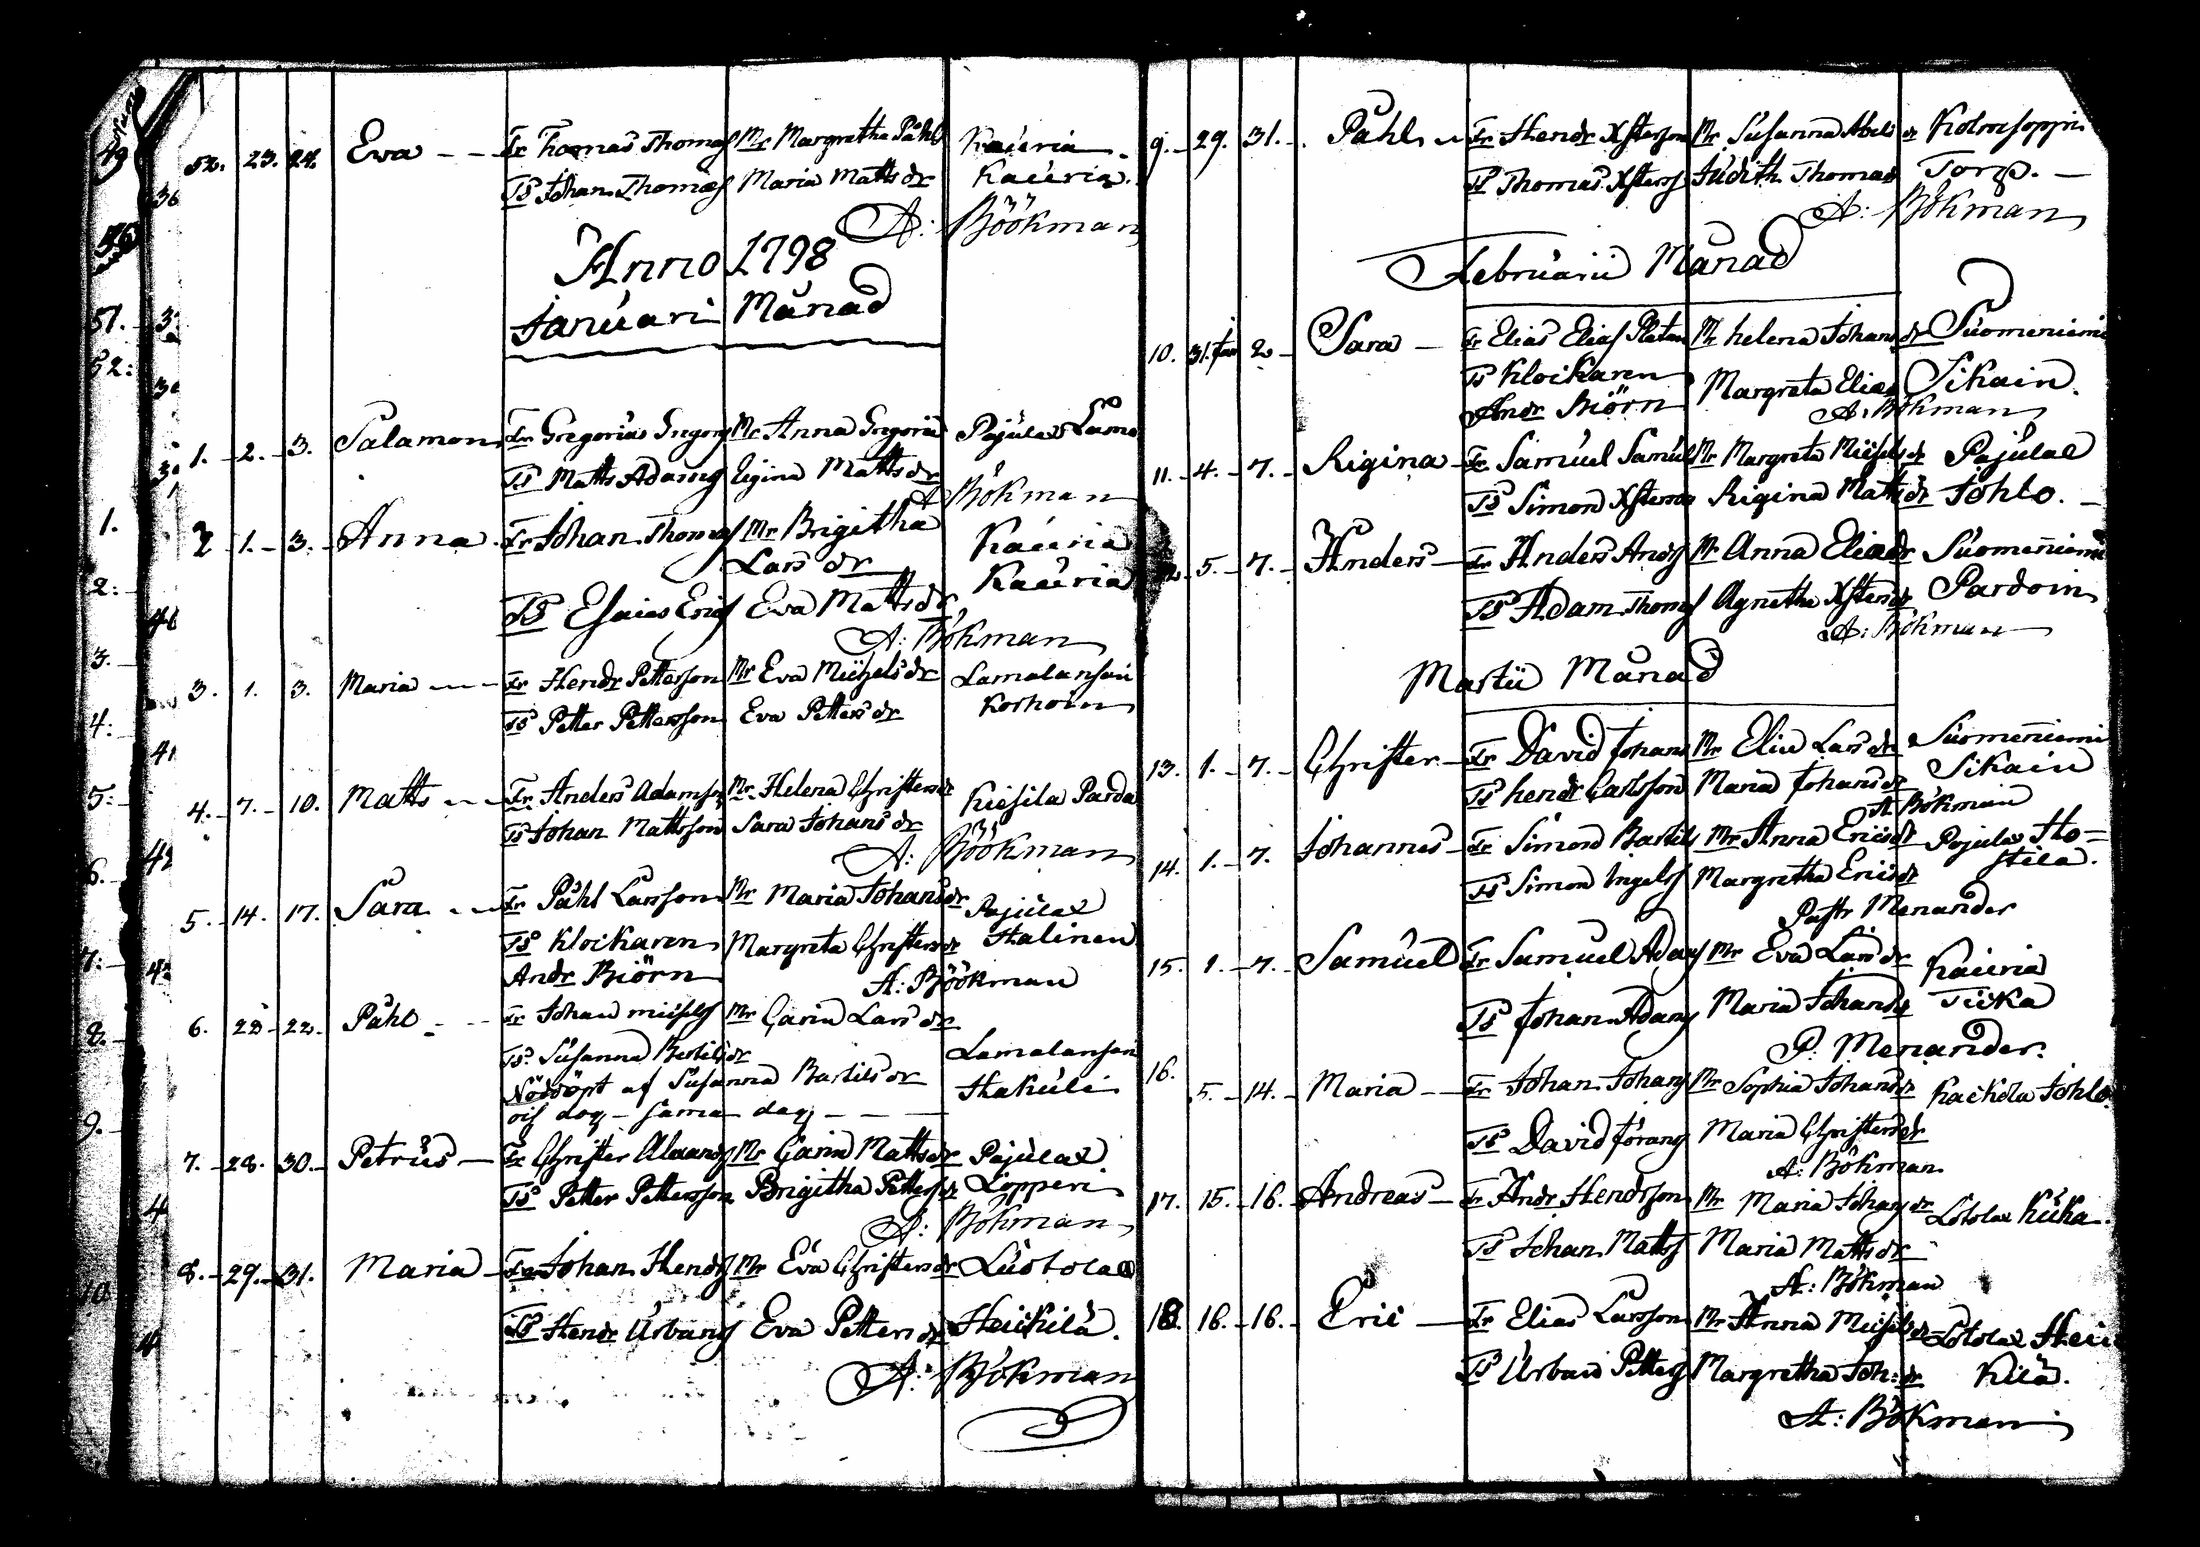 52. 23. 24. Eva - - Fr Thomas Thomss Mr Margretha Påhls Kauria
TS Johan Thomass Maria Matts dr Kauria.
A: Böökman
Anno 1798
Januari Månad
1. 2. 3. Salamon Fr Gregorius Gregorss Mr Anna Gregorii Pajulax Lamo
TS Matts Adamss Rigina Matts dr
A Bökman
2 1. 3. Anna Fr Johan Thomass Mr Brigitha Kauria
Lars dr Kauria
TS Esaias Erics Eva Matts dr
A: Bökman
3. 1. 3. Maria - - - Fr Hendr Petterson Mr Eva Michels dr Lamalansari
TS Petter Pettersson Eva Petters dr Korhoin
4. 7. 10. Matts - - Fr Anders Adamson Mr Helena Christers dr Kiesila Parda
TS Johan Mattsson Sara Johans dr
A: Böökman
5. 14. 17. Sara - - Fr Påhl Larsson Mr Maria Johans dr Pajulax
TS Klockaren Margreta Christers dr Halinen
Andr Biörn A: Böökman
6. 22. 22. Påhl - - Fr Johan michels Mr Carin Lars dr
TS Susanna Bertils dr Lamalansari
Nöddöpt af Susanna Bartils dr Hakuli
och dog - sama dag - - -
7. 28. 30. Petrus - Fr Christer Adamss Mr Carin Matts dr Pajulax
TS Petter Pettersson Brigitha Petters dr Lopperi
A: Bökman
8. 29. 31. Maria - Fr Johan Hends Mr Eva Christers dr Luotolax
TS Hendr Urbanss Eva Petters dr Heickilä.
A: Bökman
9. 29. 31. Påhl - Fr Hendr Xsterson Mr Susanna Abels dr Kolmisoppin
TS Thomas Xsterss Judith Thomas Torp. -
A: Bökman
Februarii Månad
10. 31. Jan 2 - Sara - Fr Elias Elias Platan Mr helena Johans dr Suomeniemi
TS Klockaren Margreta Elias Sikain.
Andr Biörn A: Bökman
11. 4. 7. Rigina - Fr Samuel Samuels Mr Margreta Michels dr Pajulax
TS Simon Xsterson Rigina Matts dr Johlo. -
12. 5. 7. Anders - Fr Anders Ands Mr Anna Elias dr Suomeniemi
TS Adam Thoms Agnetha Xsters dr Pardoin
A: Bökman
Martii Månad
13. 1. 7. Christer - Fr David Johans Mr Elin Lars dr Suomeniemi
TS hendr Carlsson Maria Johans dr Sikain
A: Bökman
14. 1. 7. Johannes - Fr Simon Bartils Mr Anna Erics dr Pajulax Ho=
TS Simon Ingels Margretha Erics dr stila.
Pastr Menander
15. 1. 7. Samuel Fr Samuel Adams Mr Eva Lars dr Kauria
TS Johan Adams Maria Johans dr Ticka
P: Menander.
16. 5. 14. Maria - Fr Johan Johans Mr Sophia Johans dr Kackola Johlo.
TS David Jörans Maria Christers dr
A: Bökman
17. 15. 16. Andreas - Fr Andr Hendrsson Mr Maria Johans dr Lotolax Kuha.
TS Johan Matts Maria Matts dr
A: Bökman
18. 16. 16. Eric - Fr Elias Larsson Mr Anna Michels dr Lotolax Heic
TS Urban Petters Margretha Joh: dr Kilä.
A: Bökman